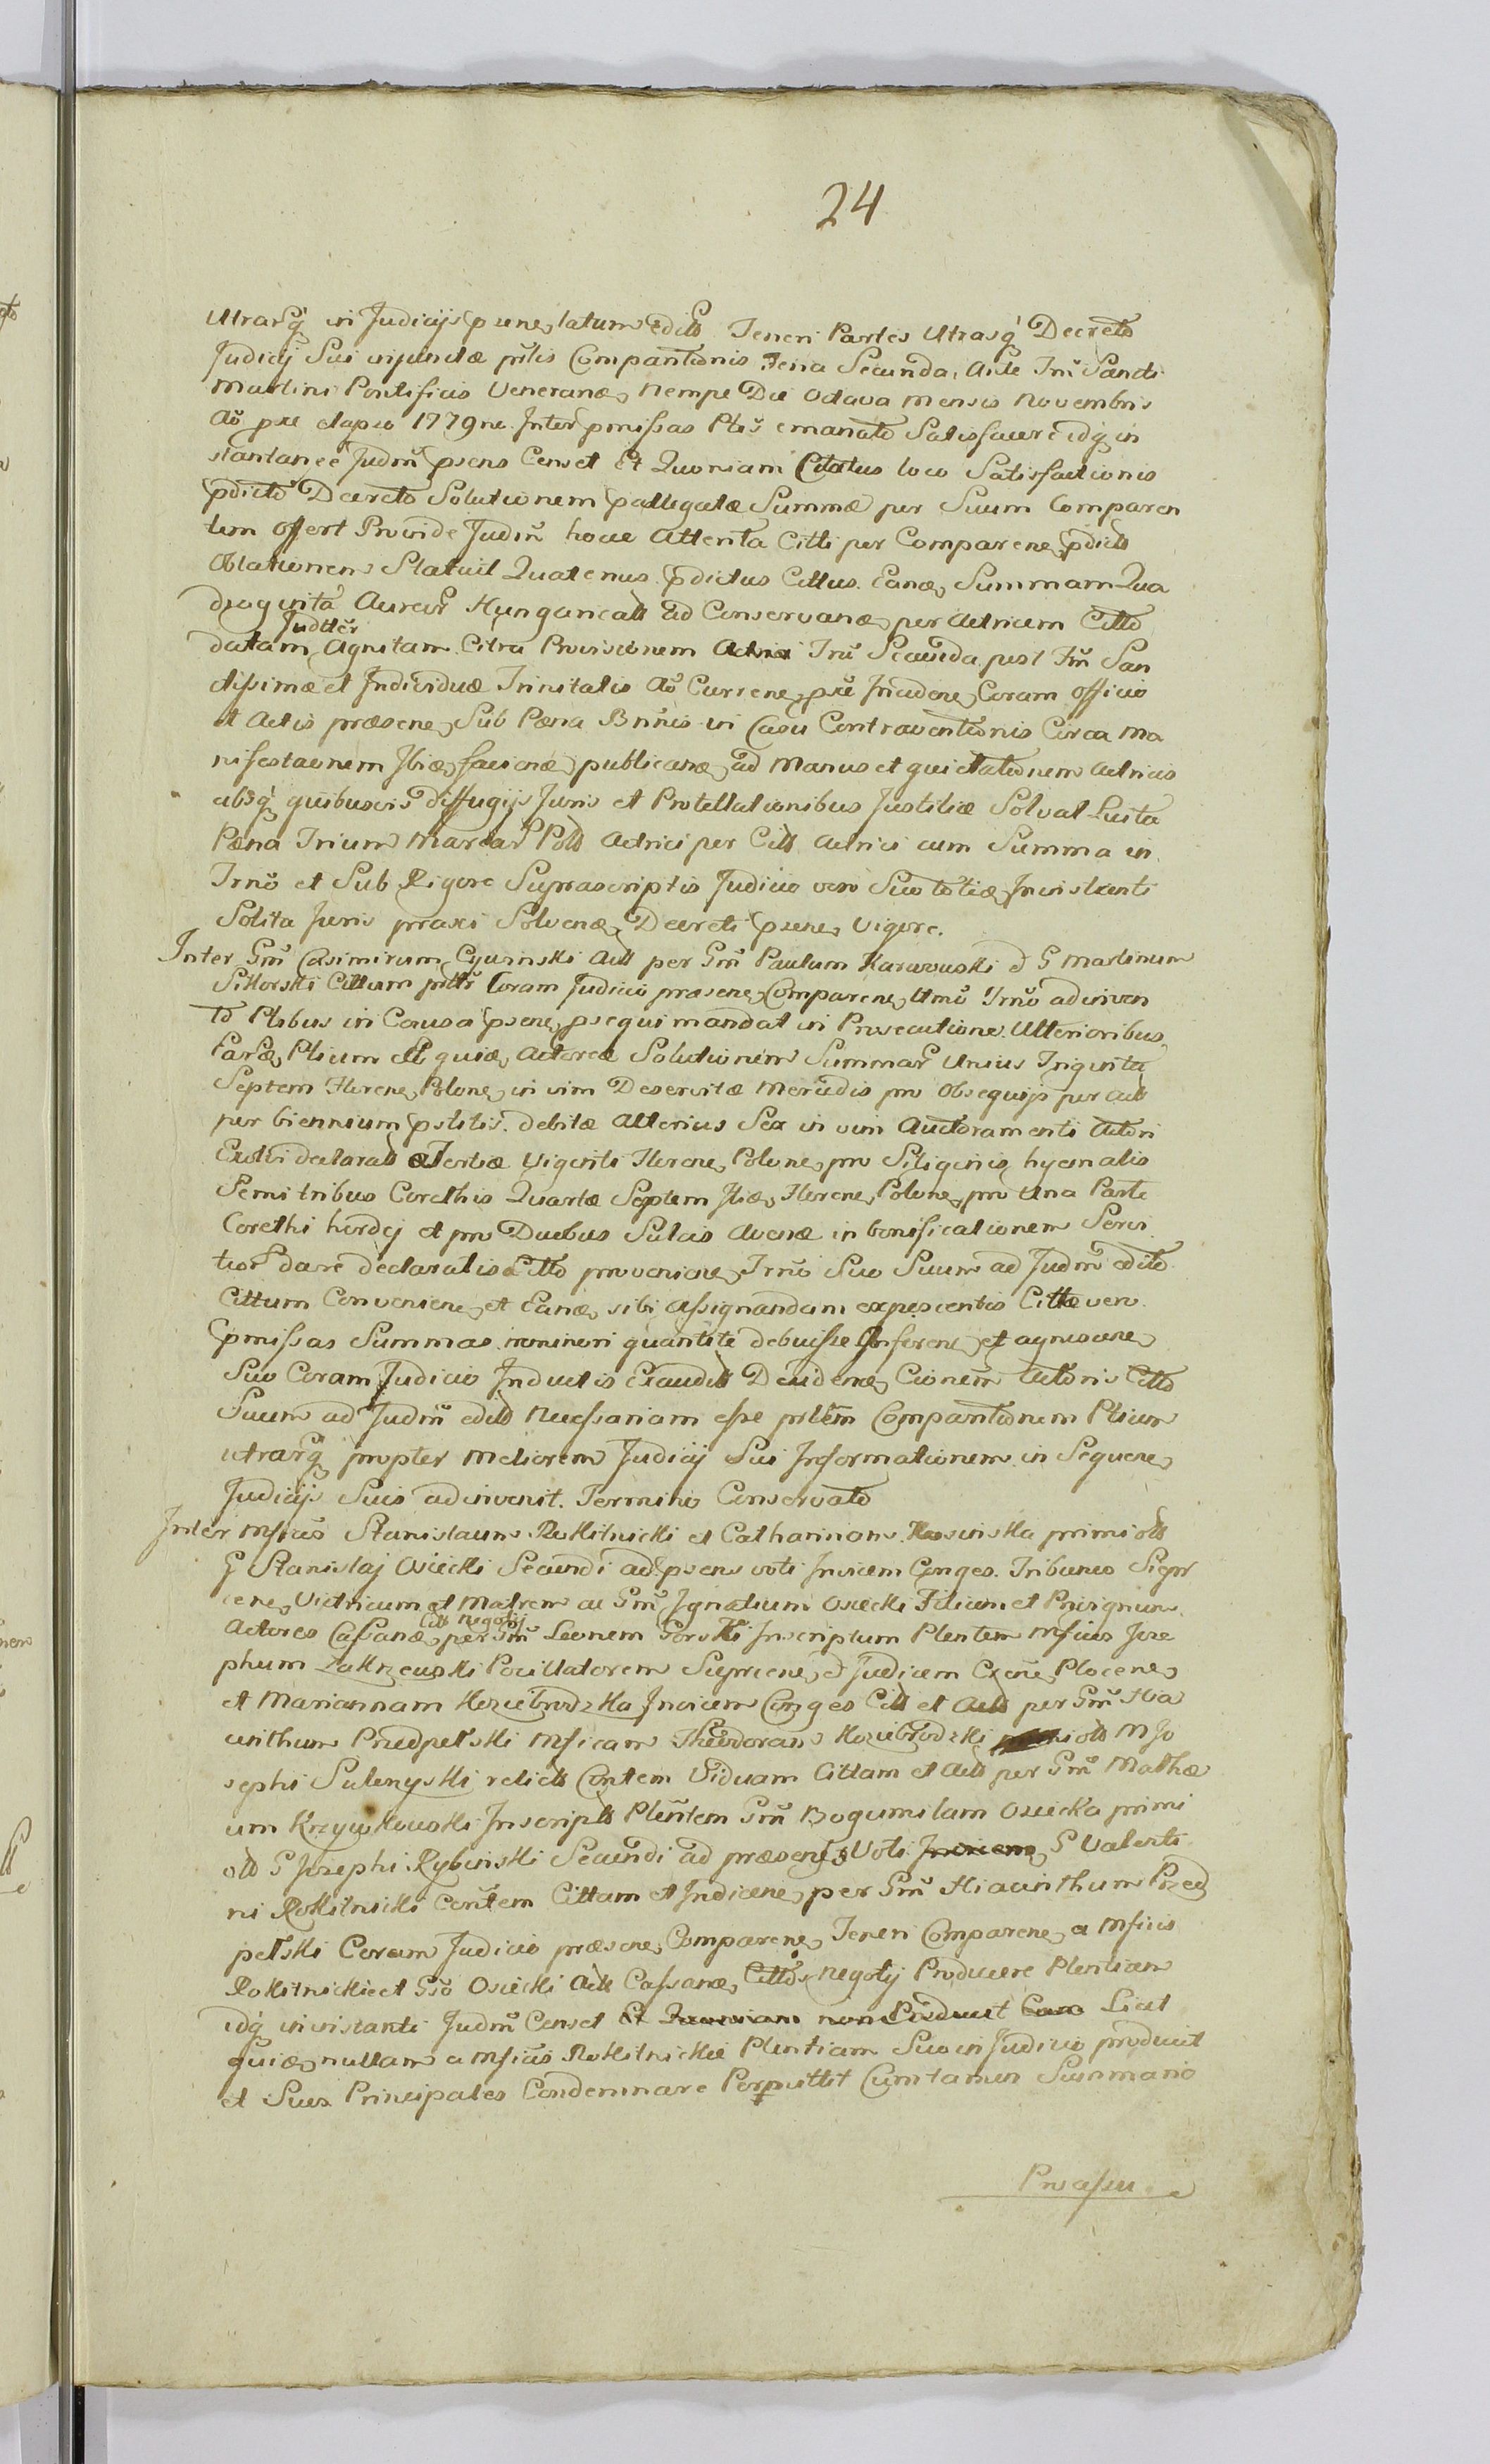 24
Utrasq in Judicijs psene, latum edit Teneri Partes Utrasq Decreto
Judicij Sui injunctæ prlis Compartionis Feria Secunda Ante Fm Sancti
Martini Pontificis Venerane, Nempe Die Octava Mensis Novembris
Ao pre elapso 1779no Inter pmissas Ptes emanato Satisfacere idq in
stantanee Judm psens Censet Et Quoniam Citatus loco Satisfactionis
pdicto Decreto Solutionem pallegatæ Summæ per Suum Comparen
tem offert Proinde Judm hocce Attenta Citti per Comparene, pdicts
Oblationem Statuit Quatenus pdictus Cittus Eanq, Summam Qua
draginta Aureor Hungaricalt ad Conservanq, per Actricem Citto
Judtter
datam Agnitam Citra Provisionem Feria Secunda post Fm San
ctissimæ et Individuæ Trinitatis Ao Currene, pre Incidene, Coram Officio
et Actis præsene, Sub Pæna Bnnis in Casu Contraventionis Circa Ma
nifestaonem publicanq, ad Manus et quietationem Actricis
absq quibusvis diffugijs Juris et Protellationibus Justitiæ Solvat Luita
Pæna Trium Marcar Polt Actrici per Citt Actrici cum Summa in
Trno et Sub Rigore Suprascriptis Judicio vero Suo totiq, Insistenti
Solita Juris praxi Solvenq, Decreti psene, Vigore.
Inter Gm Casimirum Cywinski Act per Gm Paulum Karwowski et G Martinum
Sikorski Cittum prltr Coram Judicio præsene, Comparene, Utmo Trno adinven
to Ptibus in Causa psene, psequi mandat in Prosecutione Ulterioribus
Earq, Ptium et quiq, Actorea Solutionem Summar Unius Triginta
Septem Florene, Polone, in vim Deservitæ Mercedis pro Obsequijs per Act
per biennium pstitis debitæ Alterius Sex in vim Auctoramenti Actori
Exolvi declarats Tertiæ Viginti Florene, Polone, pro Siliginis hyemalis
Semi tribus Corethis Quartæ Septem Florene, Polone, pro Una Parte
Corethi hordej et pro Duobus Sulcis Avenæ in bonificationem Servi
tior dare declaratis Citto provenienq, Trno Suo Suum ad Judm edito
Cittum Conveniene, et Eanq, sibi Assignandam expescentis Cittæ vero
pmissas Summas nemineri quantite debuisse Inferene, et agnoscene,
Suo Coram Judicio Inductis Exaudits Decidenq, Cionem Actoris Citto
Suum ad Judm edito Necessariam esse prlem Compartionem Ptium
utrarq propter Meliorem Judicij Sui Informationem in Sequene,
Judicijs Suis adinvenit. Termino Conservato
Inter Mficos Stanislaum Rokitnicki et Catharinam Kosinska primi olt
G Stanislaj Osiecki Secundi ad psens voti Invicem Conges Tribunos Sierp
cene, Vitricum et Matrem ac Gm Ignatium Osiecki Filium et Privignum
Citt Negotij
Actores Cassanq, per Gm Leonem Gorski Inscriptum Plentem Mficos Jose
phum Zakrzewski Pocillatorem Sieprcene, et Judicem Plocene,
et Mariannam Koziebrodzka Invicem Conges Citt et Act per Gm Hia
cinthum Przedpelski Mficam Theodoram Koziebrodzki olt M Jo
sephi Sulenyski relicts Contem Viduam Cittam et Act per Gm Mathæ
um Krzywkowski Inscripts Plentem Gm Bogumilam Osiecka primi
olt G Josephi Rybinski Secundi ad præsens Voti Invicem G Valenti
ni Rokitnicki Contem Cittam et Indicene, per Gm Hiacinthum Przed
pelski Coram Judicio præsene, Comparene, Teneri Comparene, a Mficis
Rokitnickie et Gso Osiecki Act Cassanq, Cittos Negotij Producere Plentiam
idq in instanti Judm Censet Et Quoniam non Producit Licet
quiq, nullam a Mficis Rokitnickie Plentiam Suo in Judicio producit
et Suos Principales Condemnare Permittit Cum tamen Summario
Processu